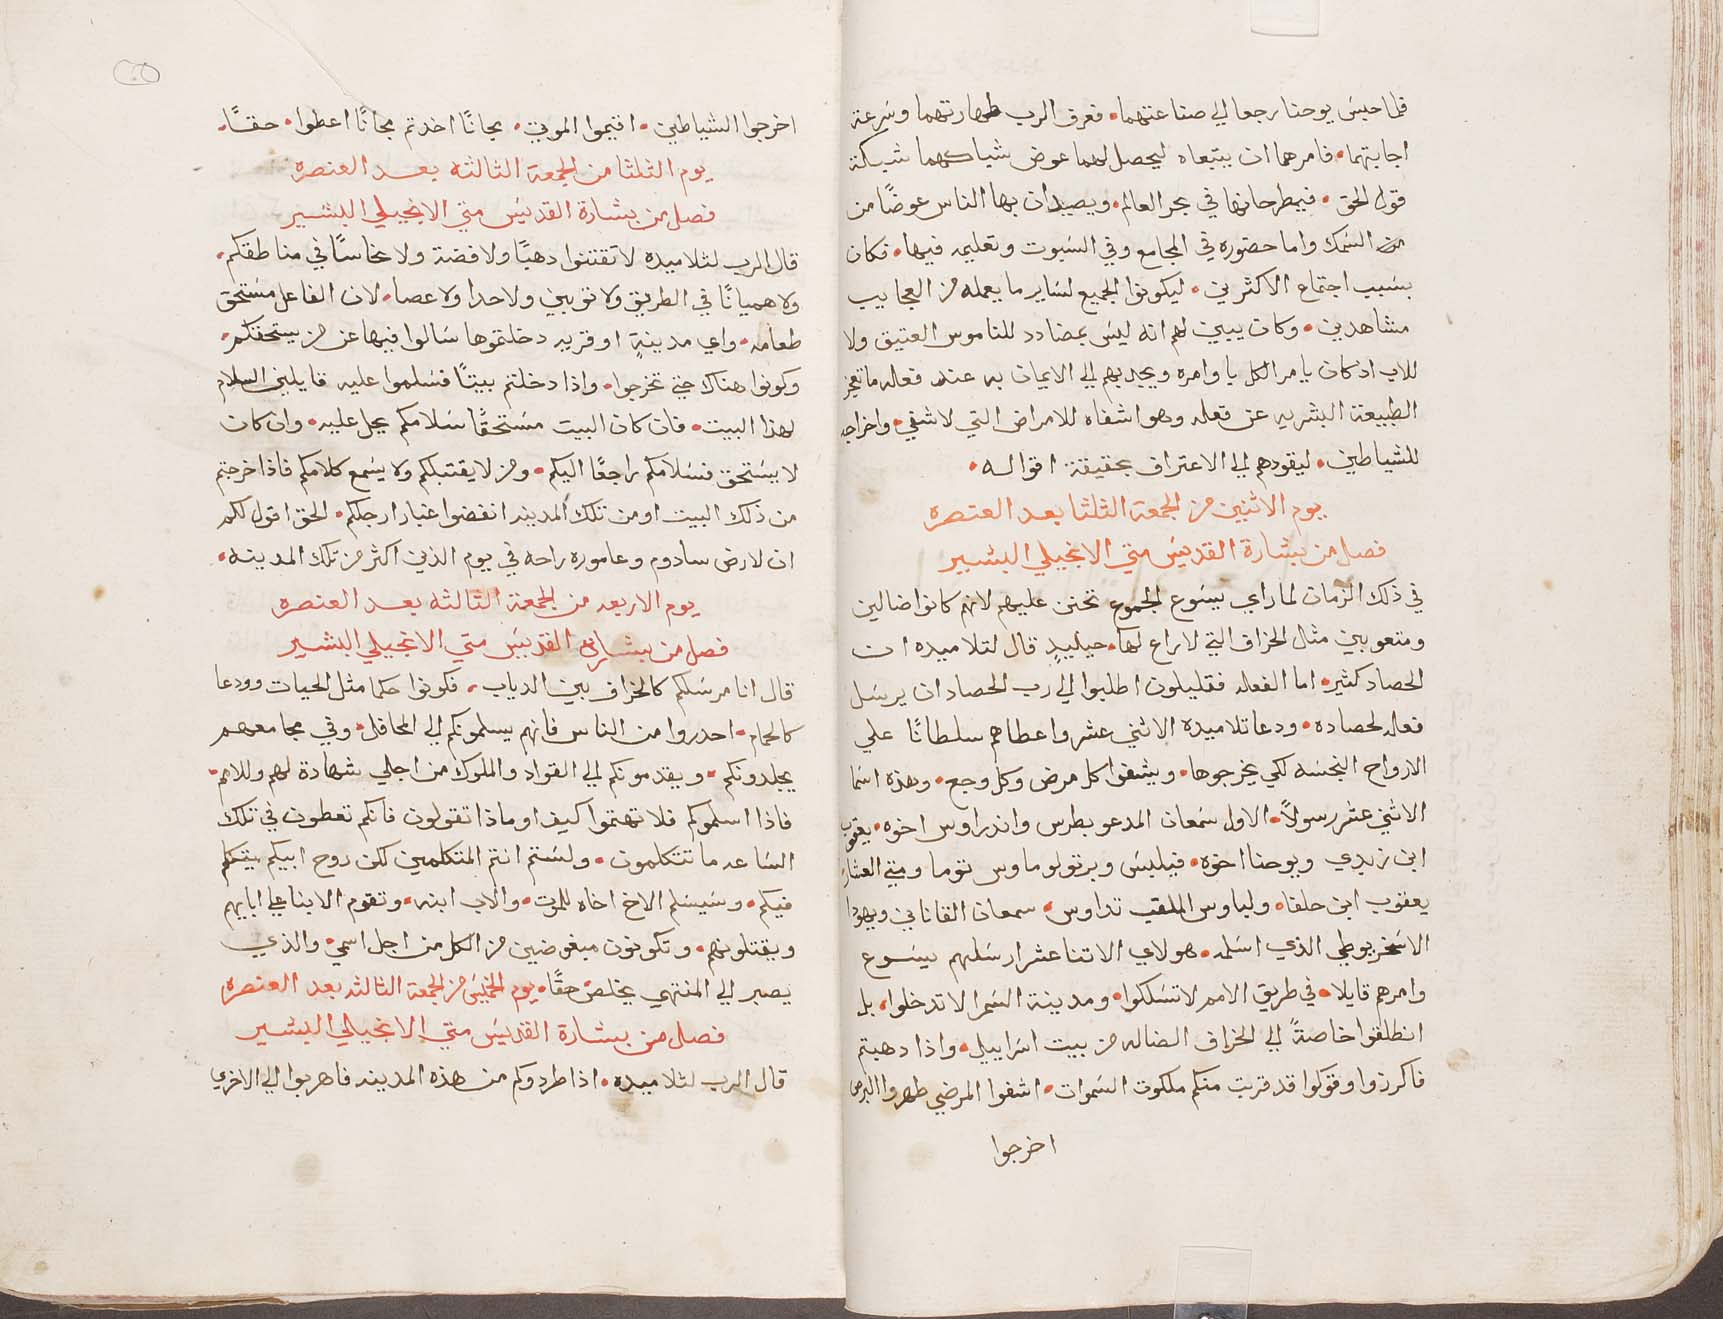 فلما حبس يوحنا رجعا الي صناعتهما • فعرف الرب طهارتهما وسرعة
اجابتهما • فامرهما ان يتبعاه ليحصل لهما عوض شباكهما شبكة
قول الحق • فيطرحانها في بحر العالم • ويصيدان بها الناس عوضًا من
السمك واما حضوره في المجامع وفي السبوت وتعليمه فيها • فكان
بسبب اجتماع الاكثرين • ليكونوا الجميع لساير ما يعمله من العجايب
مشاهدين • وكان يبين لهم انه ليس بمضادد للناموس العتيق ولا
للاب اذ كان يامر الكل باوامره ويجدبهم الي الايمان به عند فعله ما تعجز
الطبيعة البشريه عن فعله وهو اشفاه للامراض التي لا شفي • واخراجه
للشياطين • ليقودهم الي الاعتراف بحقيقة اقواله •
يوم الاثنين من الجمعة الثلثا بعد العنصره
فصل من بشارة القديس متي الانجيلي البشير
في ذلك الزمان لما راي يسوع الجموع تحنن عليهم لانهم كانوا ضالين
ومتعوبين مثل الخراف التي لا راع لها • حينيدٍ قال لتلاميده ان
الحصاد كثير • اما الفعله فقليلون اطلبوا الي رب الحصاد ان يرسل
فعله لحصاده • ودعا تلاميده الاثني عشر واعطاهم سلطانًا علي
الارواح النجسه لكي يخرجوها • ويشفوا كل مرض وكل وجع • وهذه اسما
الاثني عشر رسولاً • الاول سمعان المدعو بطرس واندراوس اخوه • يعقوب
ابن زبدي ويوحنا اخوه • فيلبس وبرتولوماوس توما ومتي العشار
يعقوب ابن حلفا • ولباوس الملقب تداوس • سمعان القاناني ويهودا
الاسخريوطي الذي اسلمه • هولاي الاتنا عشر ارسلهم يسوع
وامرهم قايلا • في طريق الامم لا تسلكوا • ومدينة السمرا لا تدخلوا • بل
انطلقوا خاصةً الي الخراف الضاله من بيت اسراييل • واذا دهبتم
فاكرزوا وقولوا قد قربت منكم ملكوت السموات • اشفوا المرضي طهروا البرص
اخرجوا
اخرجوا الشياطين • اقيموا الموتي • مجانًا اخدتم مجانًا اعطوا • حقًا •
يوم الثلثا من الجمعة الثالثه بعد العنصره
فصل من بشارة القديس متي الانجيلي البشير
قال الرب لتلاميده لا تقتنوا دهبًا ولا فضة ولا نحاسًا في مناطقكم •
ولا هميانًا في الطريق ولا توبين ولا حدا ولا عصا • لان الفاعل مستحق
طعامه • واي مدينةٍ او قريه دخلتموها سالوا فيها عن من يستحقكم •
وكونوا هناك حتي تخرجوا • واذا دخلتم بيتًا فسلموا عليه قايلين السلام
لهذا البيت • فان كان البيت مستحقًا سلامكم يحل عليه • وان كان
لا يستحق فسلامكم راجعًا اليكم • ومن لا يقتبلكم ولا يسمع كلامكم فاذا خرجتم
من ذلك البيت او من تلك المدينه انفضوا غبار ارجلكم • الحق اقول لكم
ان لارض سادوم وعاموره راحه في يوم الدين اكثر من تلك المدينه •
يوم الاربعه من الجمعة الثالثه بعد العنصره
فصل من بشارة القديس متي الانجيلي البشير
قال انا مرسلكم كالخراف بين الدياب • فكونوا حكما مثل الحيات وودعا
كالحمام • احدروا من الناس فانهم يسلمونكم الي المحافل • وفي مجامعهم
يجلدونكم • ويقدمونكم الي القواد والملوك من اجلي شهادة لهم وللامم •
فاذا اسلموكم فلا تهتموا كيف او ماذا تقولون فانكم تعطون في تلك
الساعه ما تتكلمون • ولستم انتم المتكلمين لكن روح ابيكم يتكلم
فيكم • وسيسلم الاخ اخاه للموت • والاب ابنه • وتقوم الابنا علي ابايهم
ويقتلونهم • وتكونون مبغوضين من الكل من اجل اسمي • والذي
يصبر الي المنتهي يخلص حقًا • يوم الخميس من الجمعة الثالثه بعد العنصره
فصل من بشارة القديس متي الانجيلي البشير
قال الرب لتلاميده • اذا طردوكم من هذه المدينه فاهربوا الي الاخري